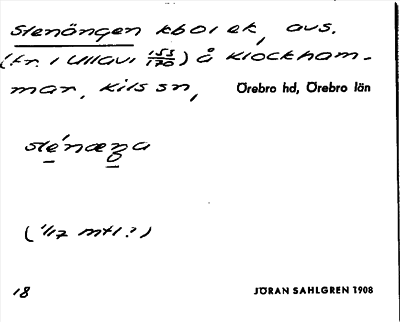 Stenängen kbol ek, avs.
(fr. i Ullavi 153/170) å Klockham-
mar, Kils sn, Örebro hd, Örebro län
sténæŋa
(1/17 mtl?)
18 JÖRAN SAHLGREN 1908